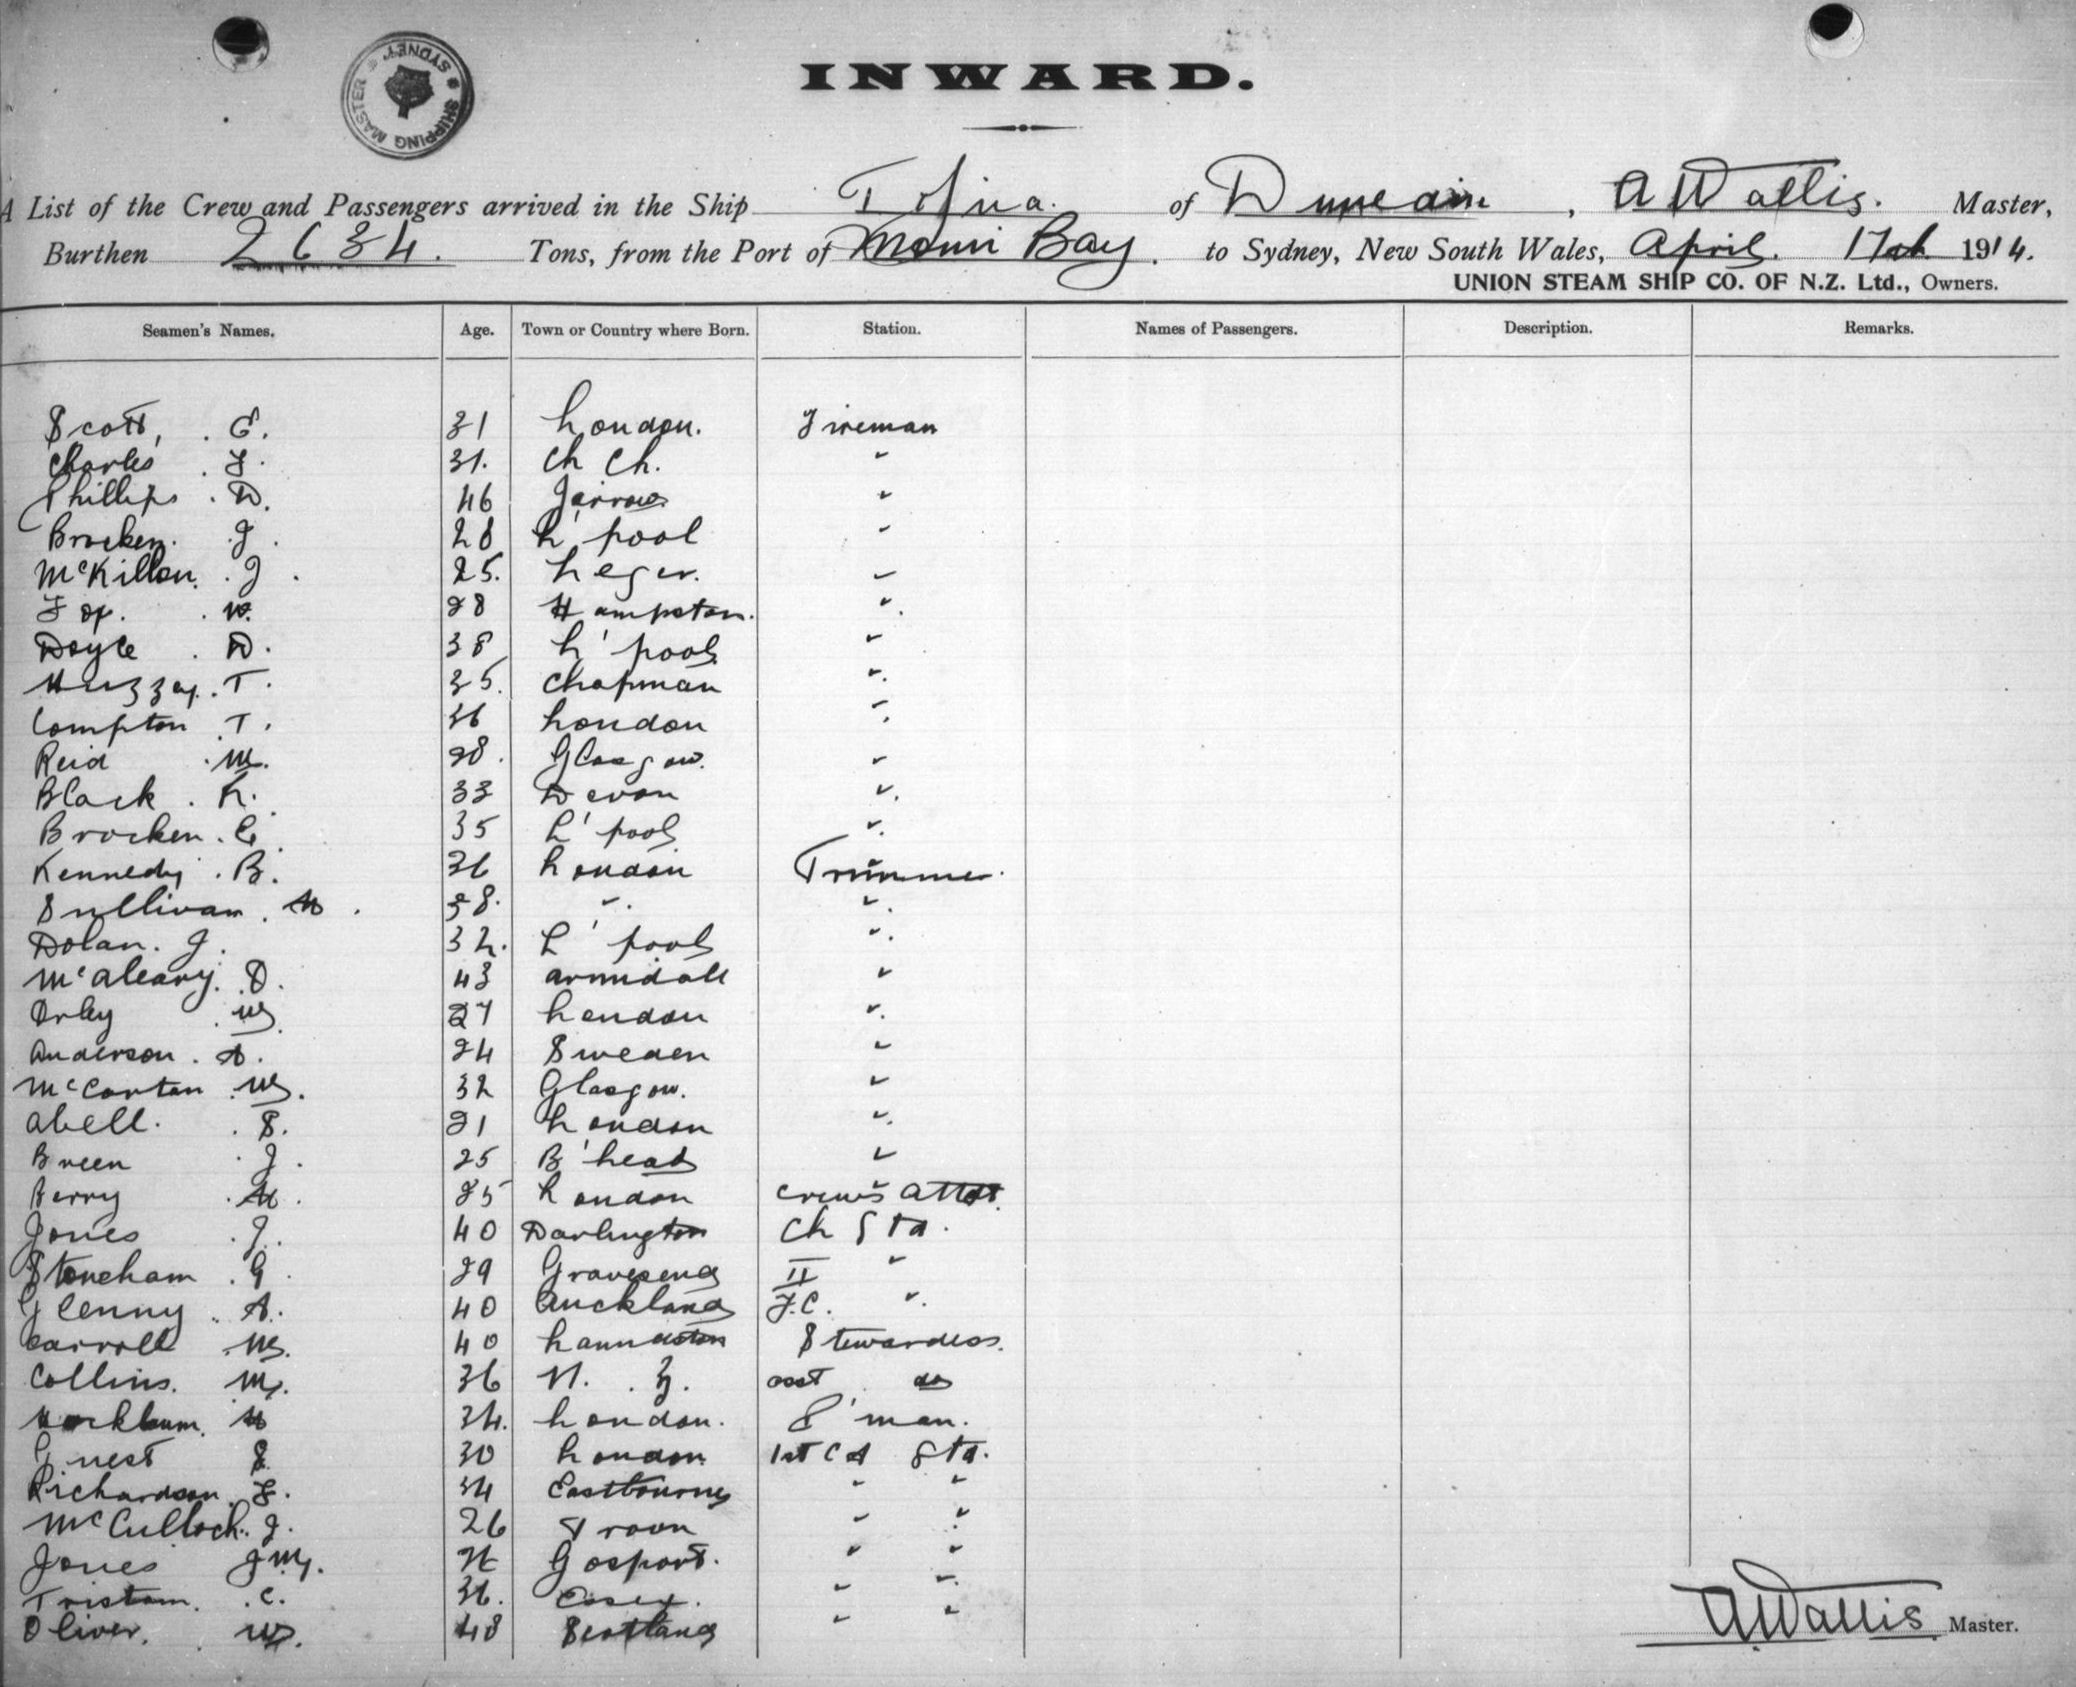 SHIPPING MASTER * SYDNEY *
INWARD.
A List of the Crew and Passengers arrived in the Ship Tofua. of Dunedin, A Wallis. Master,
Burthen 2634. Tons, from the Port of Momi Bay. to Sydney, New South Wales, April. 17th 1914.
UNION STEAM SHIP CO. OF N.Z. Ltd., Owners.
Seamen's Names. Age. Town or Country where Born. Station. Names of Passengers. Description. Remarks.
Scott, . G. 31 London. Fireman
Charles . F. 31. Ch Ch. "
Phillips . D. 46 Jarrow "
Brocken. J. 28 L'pool "
McKillon. . J. 25. "
Fox. . W. 28 "
Doyle . D. 38 L'pool "
Huzzey. T. 35. Chapman "
Compton T. 36 London "
Reid . M. 28. Glasgow. "
Black . K. 33 Devon "
Brocken. E. 35 L'pool "
Kennedy . B. 36 London Trimmer.
Sullivan. M. 38. " "
Dolan. J. 32. L'pool "
McAleavy. D. 43 Armidale "
W. 27 London "
Anderson. A. 24 Sweden "
McCartan W. 32 Glasgow. "
Abell. . S. 21 London "
Breen . J. 25 B'head "
Berry . H. 25 London Crew's Attdt.
Jones . J. 40 Darlington Ch Std.
Stoneham . G. 29 Gravesend II "
Glenny . A. 40 Auckland F.C. "
Carroll . M. 40 Stewardess.
Collins. M. 36 N. Z. asst do
H 34. London. S'man.
Guest S. 30 London 1st Cl Std.
Richardson. F. 34 Eastbourne " "
McCulloch. J. 26 Troon " "
Jones J.M. Gosport. " "
Tristam. . C. 36. Essex. " "
Oliver. . W. 48 Scotland " "
A Wallis Master.